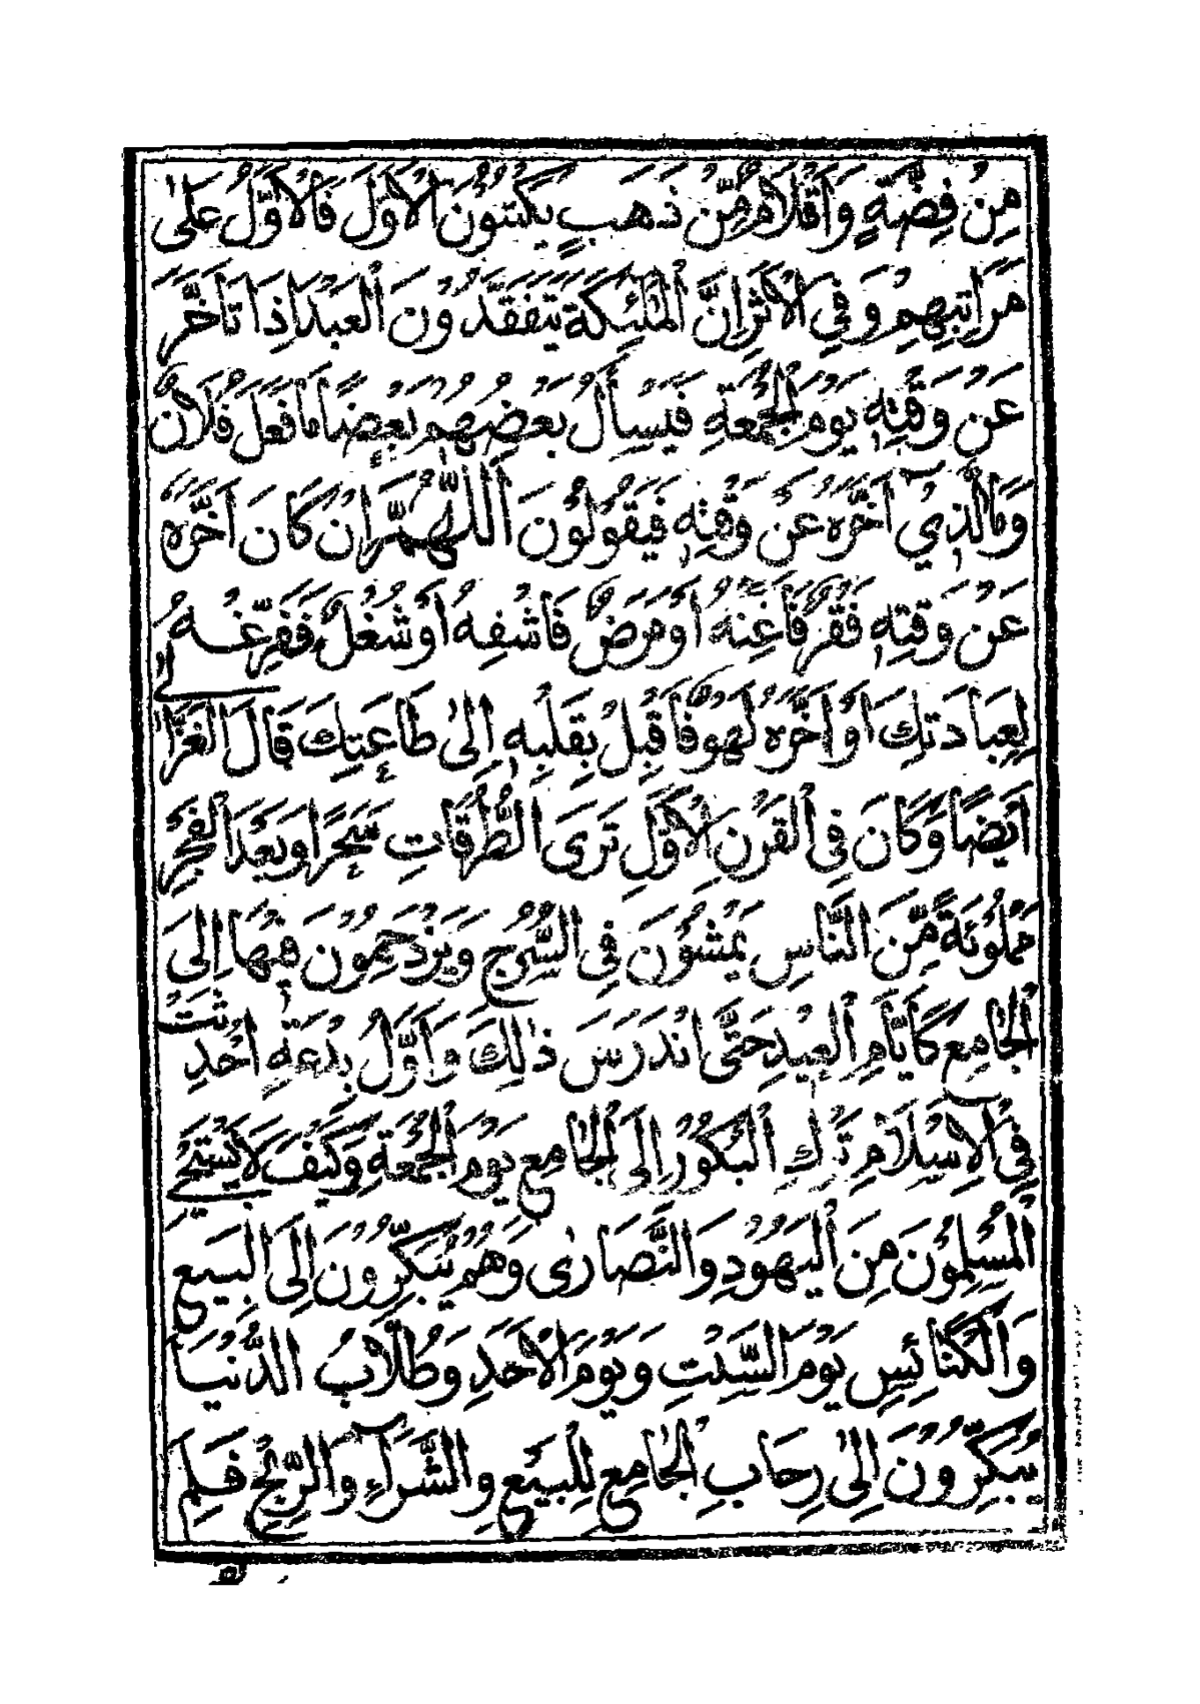 مِنْ فِضَّةٍ وَأَقْلَامٌ مِّنْ ذَهَبٍ يَكْتُبُونَ الْأَوَّلَ فَالْأَوَّلَ عَلَىٰ
مَرَاتِبِهِمْ وَفِي الْأَثَرِ اِنَّ الْمَلٰئِكَةَ يَتَفَقَّدُونَ الْعَبْدَ اِذَا تَأَخَّرَ
عَنْ وَقْتِهٖ يَوْمَ الْجُمُعَةِ فَيَسْأَلُ بَعْضُهُمْ بَعْضًا مَا فَعَلَ فُلَانٌ
وَمَا الَّذِيْ اَخَّرَهُ عَنْ وَقْتِهٖ فَيَقُولُونَ اَللّٰهُمَّ اِنْ كَانَ اَخَّرَهُ
عَنْ وَقْتِهٖ فَقْرٌ فَأَغْنِهُ أَوْ مَرَضٌ فَاشْفِهُ أَوْ شُغْلٌ فَفَرِّغْهُ
لِعِبَادَتِكَ اَوْ اَخَّرَهُ لَهْوٌ فَأَقْبِلْ بِقَلْبِهٖ اِلَىٰ طَاعَتِكَ قَالَ الْغَزَّالِي
اَيْضًا وَكَانَ فِي الْقَرْنِ الْأَوَّلِ تَرَى الطُّرُقَاتِ سَحَرًا وَبَعْدَ الْفَجْرِ
مَمْلُوْئَةً مِّنَ النَّاسِ يَمْشُوْنَ فِي السُّرُجِ وَيَزْدَحِمُوْنَ فِيْهَا اِلَى
الْجَامِعِ كَأَيَّامِ الْعِيْدِ حَتَّى انْدَرَسَ ذٰلِكَ وَأَوَّلُ بِدْعَةٍ اُحْدِثَتْ
فِي الْاِسْلَامِ تَرْكُ الْبُكُوْرِ اِلَى الْجَامِعِ يَوْمَ الْجُمُعَةِ وَكَيْفَ لَا يَسْتَحْيِيْ
الْمُسْلِمُوْنَ مِنَ الْيَهُوْدِ وَالنَّصَارٰى وَهُمْ يُبَكِّرُوْنَ اِلَى الْبِيَعِ
وَالْكَنَائِسِ يَوْمَ السَّبْتِ وَيَوْمَ الْاَحَدِ وَطُلَّابُ الدُّنْيَا
يُبَكِّرُوْنَ اِلَىٰ رِحَابِ الْجَامِعِ لِلْبَيْعِ وَالشِّرَآءِ وَالرِّبْحِ فَلِمَ